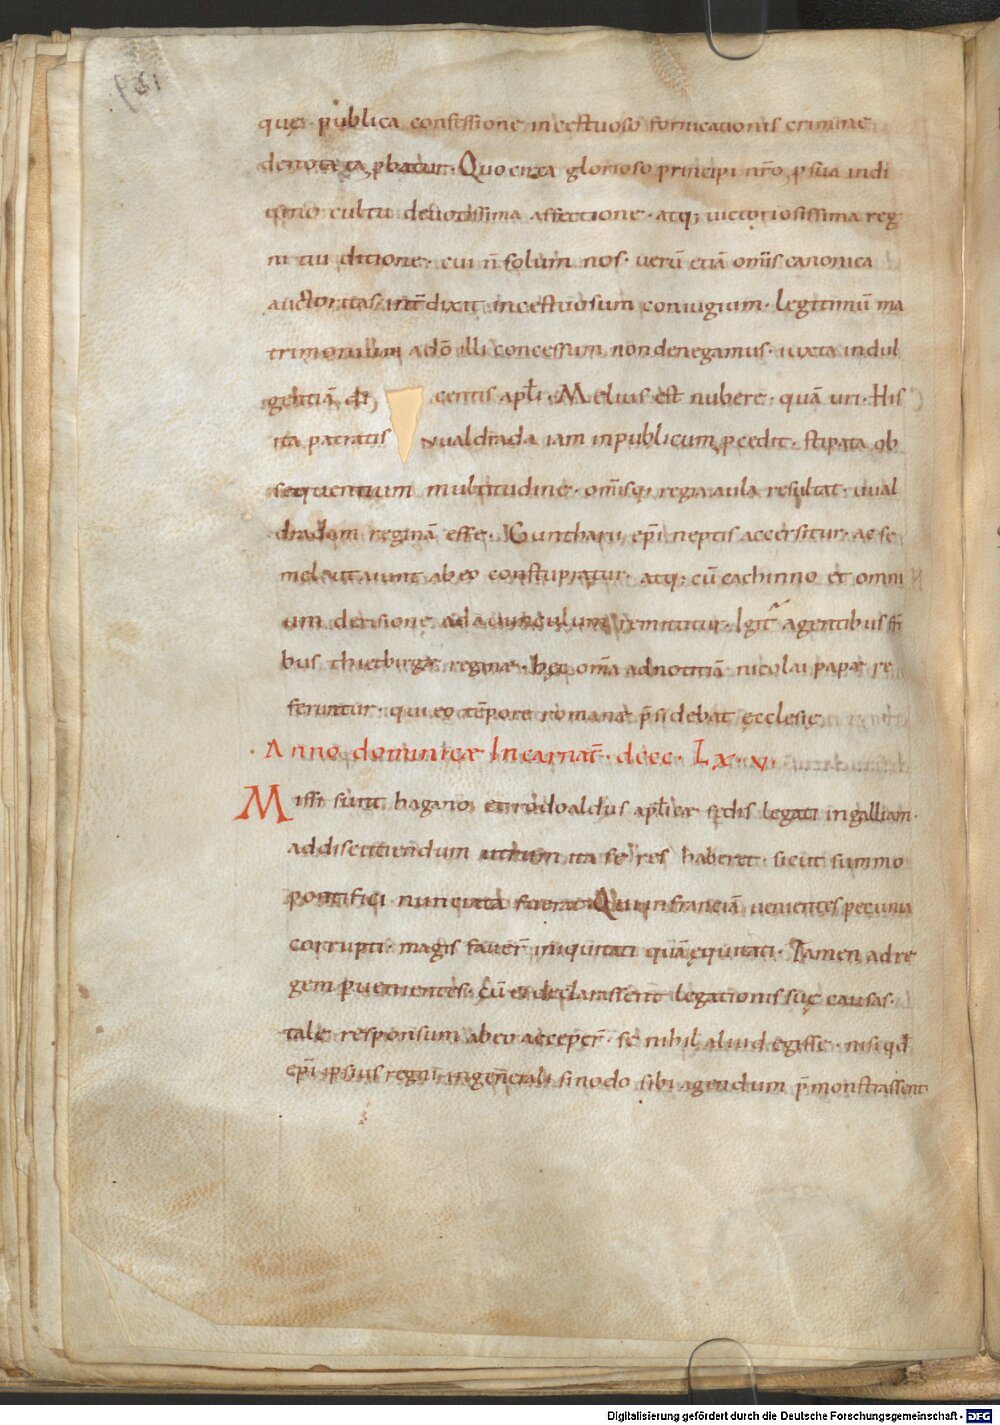 quę publica confessione incestuoso fornicationis crimine
denotata ꝓbatur. Quocirca glorioso principi nr̄o ꝓ sua indi
uino cultu deuotissima affectione. atq; uictoriosissima reg
ni tui ditione. cui n̄ solum nos. uerū etiā om̄is canonica
auctoritas int̄dixit incestuosum coniugium. legitimū ma
trimonium a dō illi concessum non denegamus. iuxta indul
gentiā di centis apłi. Melius est nubere. quā uri. His
ita patratis uualdrada iam in publicum ꝓcedit. stipata ob
sequentium multitudine. om̄isq; regia aula resultat. uual
dradam reginā esse. Guntharii ep̄i neptis accersitur. ac se
mel ut aiunt ab eo constupratur. atq; cū cachinno et omni
um derisione ad auunculum remittitur. Igit᷑ agentibus fr̄i
bus thietbirgæ reginæ. hęc om̄a ad notitiā nicolai papæ re
feruntur. qui eo tēpore romanæ p̄sidebat ęcclesię
Anno dominicæ Incarnat̄. dccc. Lx. v.
Missi sunt hagano et rodoaldus apłicæ sedis legati in galliam.
ad discutiendum utrum ita se res haberet. sicut summo
pontifici nunciata fuerat. Qui in franciā uenientes pecunia
corrupti. magis fauer̄ iniquitati quā ęquitati. Tamen ad re
gem ꝑuenientes. cū ei declarassent legationis suę causas.
tale responsum ab eo acceper̄. se nihil aliud egisse. nisi qd̄
ep̄i ipsius regni in generali sinodo sibi agendum p̄monstrassent
Digitalisierung gefördert durch die Deutsche Forschungsgemeinschaft - DFG